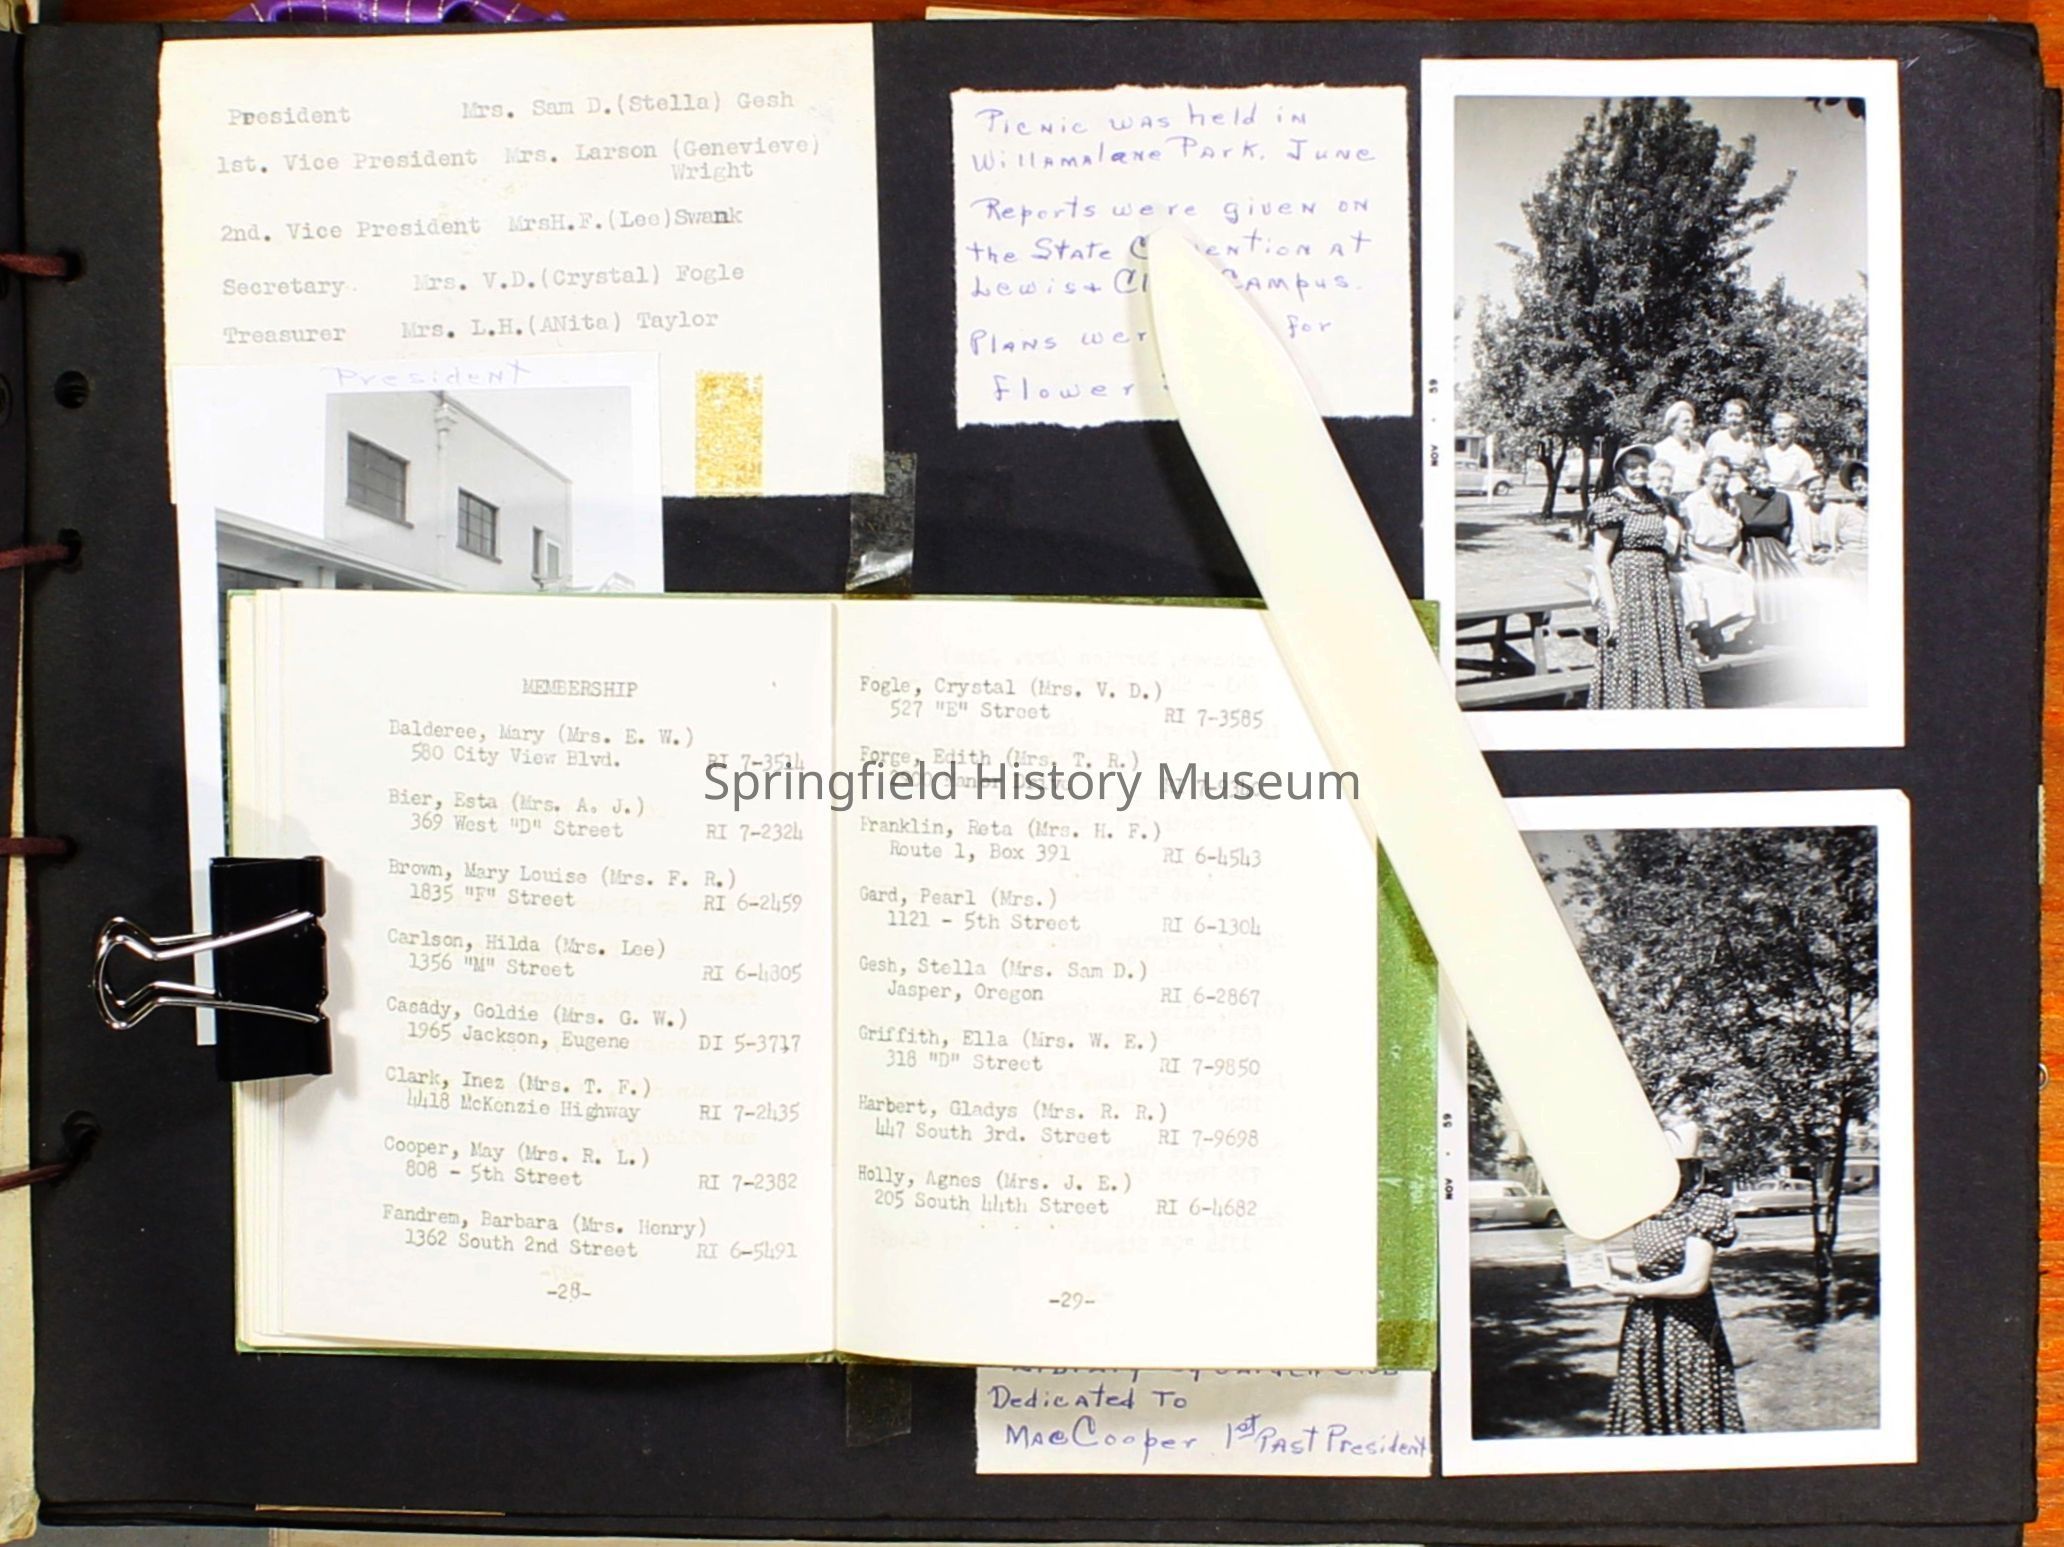 President Mrs. Sam D.(Stella) Gesh
1st. Vice President Mrs. Larson (Genevieve)
Wright
2nd. Vice President MrsH.F.(Lee)Swank
Secretary. Mrs. V.D.(Crystal) Fogle
Treasurer Mrs. L.H.(ANita) Taylor
President
Picnic was held in
Willamalane Park, June
Reports were given on
the State
Lewis +
Plans for
Flower
NOV . 59
MEMBERSHIP
Balderee, Mary (Mrs. E. W.)
580 City View Blvd. RI 7-3514
Bier, Esta (Mrs. A. J.)
369 West "D" Street RI 7-2324
Brown, Mary Louise (Mrs. F. R.)
1835 "F" Street RI 6-2459
Carlson, Hilda (Mrs. Lee)
1356 "M" Street RI 6-4805
Casady, Goldie (Mrs. G. W.)
1965 Jackson, Eugene DI 5-3717
Clark, Inez (Mrs. T. F.)
4418 McKenzie Highway RI 7-2435
Cooper, May (Mrs. R. L.)
808 - 5th Street RI 7-2382
Fandrem, Barbara (Mrs. Henry)
1362 South 2nd Street RI 6-5491
-28-
Fogle, Crystal (Mrs. V. D.)
527 "E" Street RI 7-3585
Forge, Edith (Mrs. T. R.)
Franklin, Reta (Mrs. H. F.)
Route 1, Box 391 RI 6-4543
Gard, Pearl (Mrs.)
1121 - 5th Street RI 6-1304
Gesh, Stella (Mrs. Sam D.)
Jasper, Oregon RI 6-2867
Griffith, Ella (Mrs. W. E.)
318 "D" Street RI 7-9850
Harbert, Gladys (Mrs. R. R.)
447 South 3rd. Street RI 7-9698
Holly, Agnes (Mrs. J. E.)
205 South 44th Street RI 6-4682
-29-
Springfield History Museum
NOV . 59
Dedicated To
Mae Cooper 1st Past President